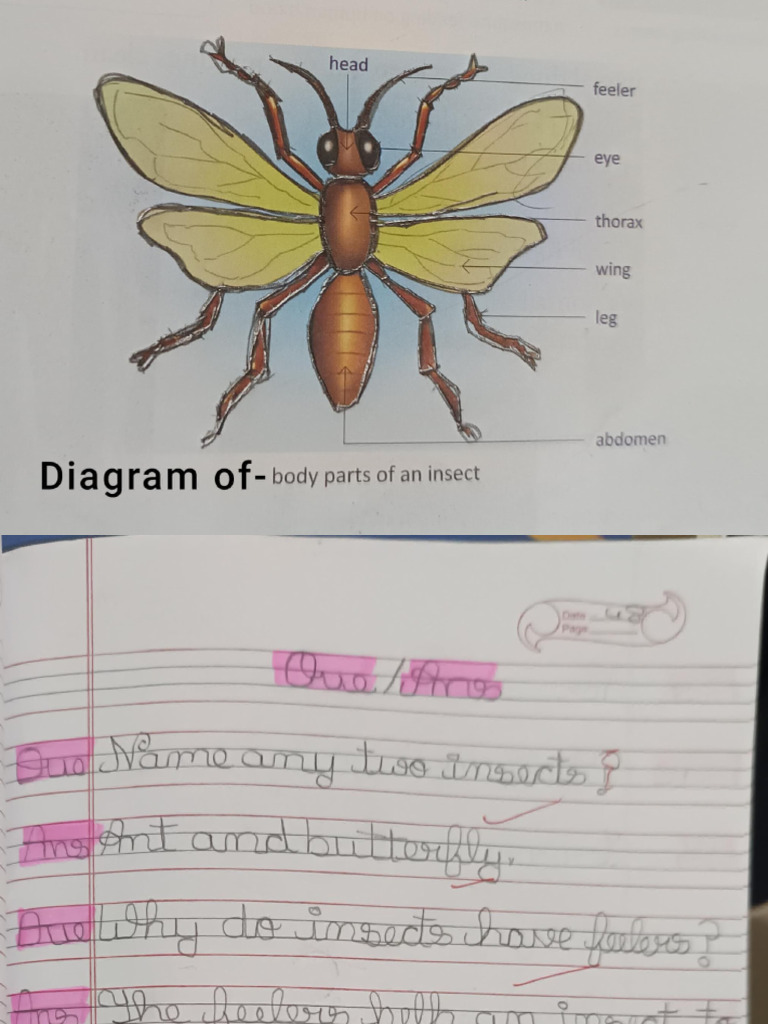 head
feeler
eye
thorax
wing
leg
abdomen
Diagram of- body parts of an insect
Date 48
Page
Que/Ans
Que Name any two insects?
Ans Ant and butterfly.
Que Why do insects have feelers?
Ans The feelers help an insect to